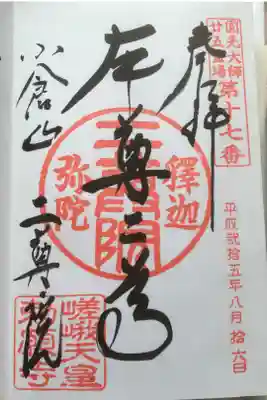 圓光大師
廿五霊場
第十七番
奉拝
平成貮拾五年八月拾六日
本尊二尊
釋迦
弥陀
二尊院
小倉山
二尊院
嵯峨天皇
勅願寺